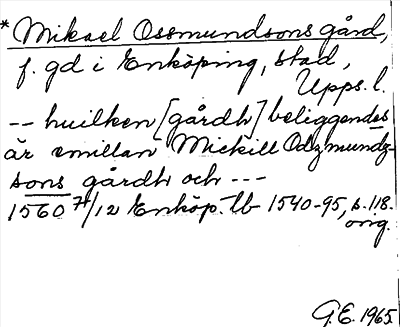 * Mikael Ossmundsons gård,
f. gd i Enköping, stad,
Upps. l.
-- huilken [gårdh] beliggendes
är emillan Mickill Odzmundz-
sons gårdh och ---
1560 7/12 Enköp. tb 1540-95, s. 118.
orig.
G.E. 1965.